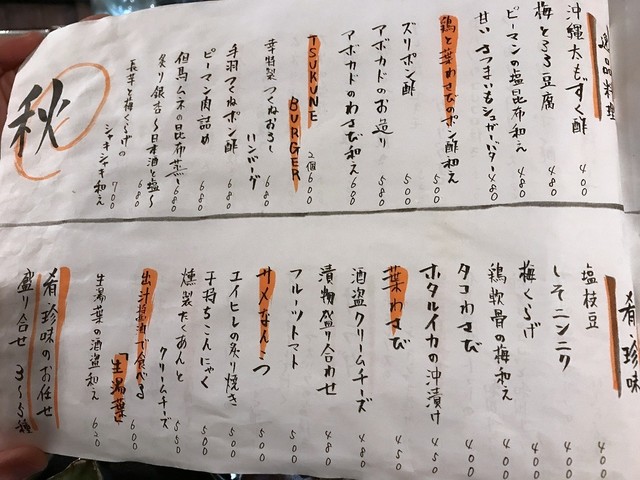 逸品料理
沖縄太もずく酢 400
梅とろろ豆腐 480
ピーマンの塩昆布和え 480
甘いさつまいもシュガーバター 480
鶏と葉わさびのポン酢和え 500
ズリポン酢 500
アボカドのお造り 580
アボカドのわさび和え 600
TSUKUNE
BURGER 2個600
幸特製つくねおろし
ハンバーグ 680
手羽つくねポン酢 680
ピーマン肉詰め 680
但馬ムネの昆布蒸し 680
炙り銀杏〜日本酒と塩〜 680
長芋と梅くらげの
シャキシャキ和え 700
秋
肴・珍味
塩枝豆 400
しそニンニク 400
梅くらげ 400
鶏軟骨の梅和え 400
タコわさび 400
ホタルイカの沖漬け 450
葉わさび 450
酒盗クリームチーズ 480
漬物盛り合わせ 480
フルーツトマト 500
サメなんこつ 500
エイヒレの炙り焼き 500
子持ちこんにゃく 500
燻製たくあんと
クリームチーズ 550
出汁醤油で食べる
「生湯葉」 600
生湯葉の酒盗和え 620
肴・珍味のお任せ
盛り合せ 3〜5種